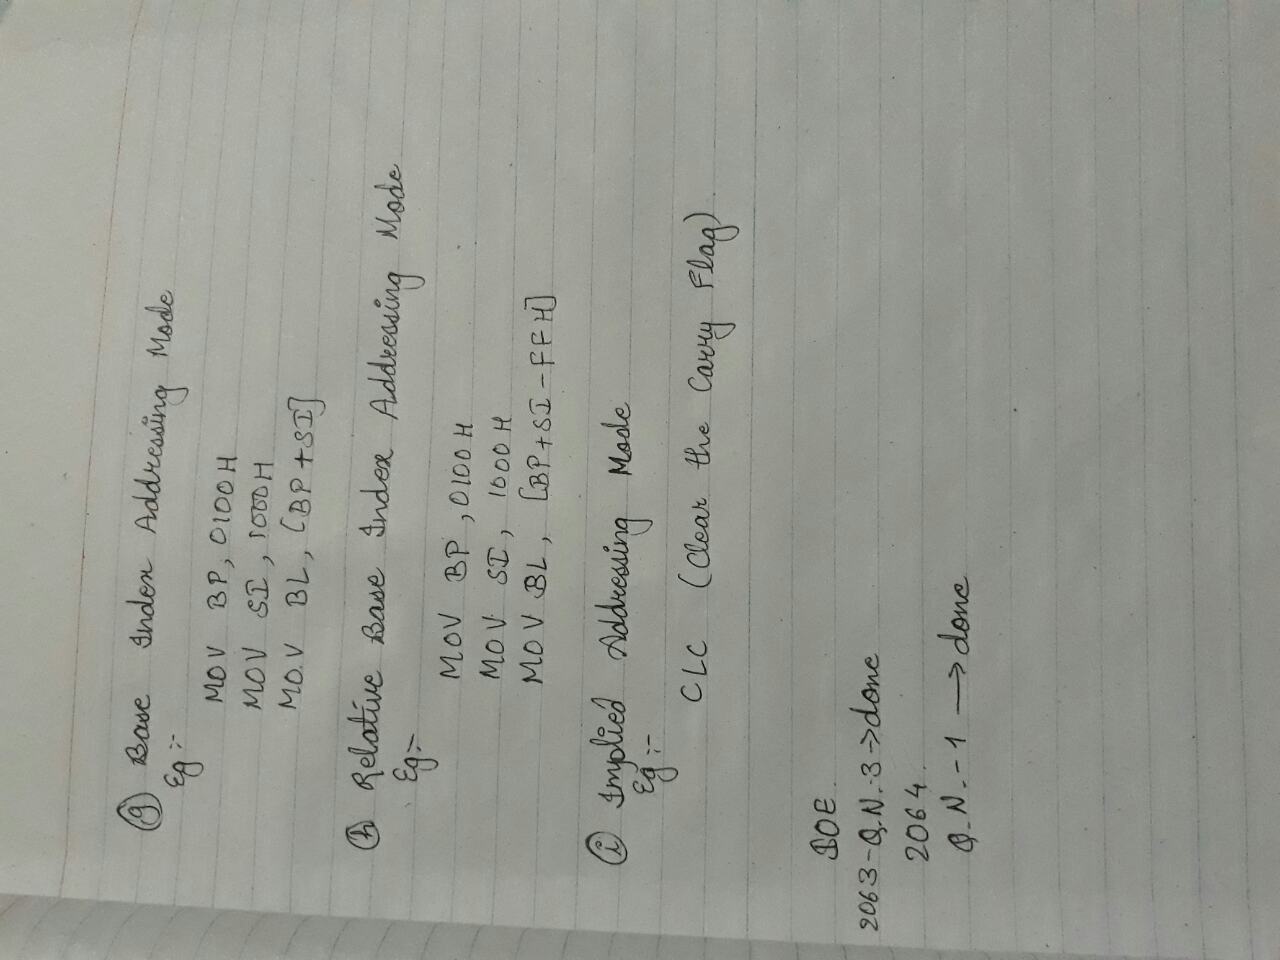 (g) Base Index Addressing Mode
Eg:-
MOV BP, 0100H
MOV SI, 1000H
MOV BL, [BP+SI]
(h) Relative Base Index Addressing Mode
Eg:-
MOV BP, 0100H
MOV SI, 1000H
MOV BL, [BP+SI-FFH]
(i) Implied Addressing Mode
Eg:-
CLC (Clear the Carry Flag)
IOE
2063-Q.N.:3→done
2064
Q.N.-1→done